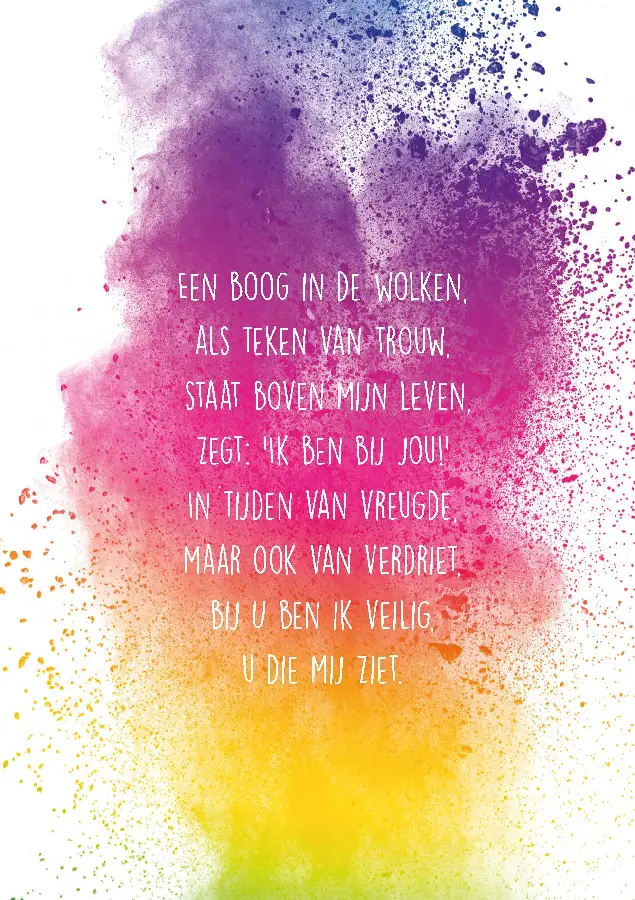 EEN BOOG IN DE WOLKEN,
ALS TEKEN VAN TROUW,
STAAT BOVEN MIJN LEVEN,
ZEGT: 'IK BEN BIJ JOU!'
IN TIJDEN VAN VREUGDE,
MAAR OOK VAN VERDRIET,
BIJ U BEN IK VEILIG,
U DIE MIJ ZIET.